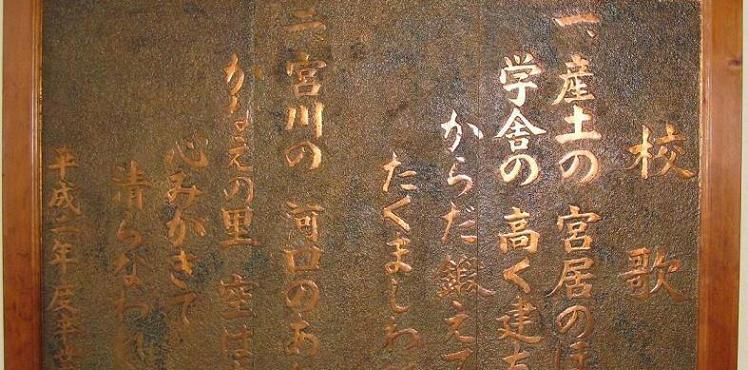 校歌
一、産土の 宮居のほ
学舎の 高く建ち
からだ鍛えて
たくましわ
二、宮川の 河口のあ
かなえの里 空は
心みがきて
清らなわ
平成二年度卒